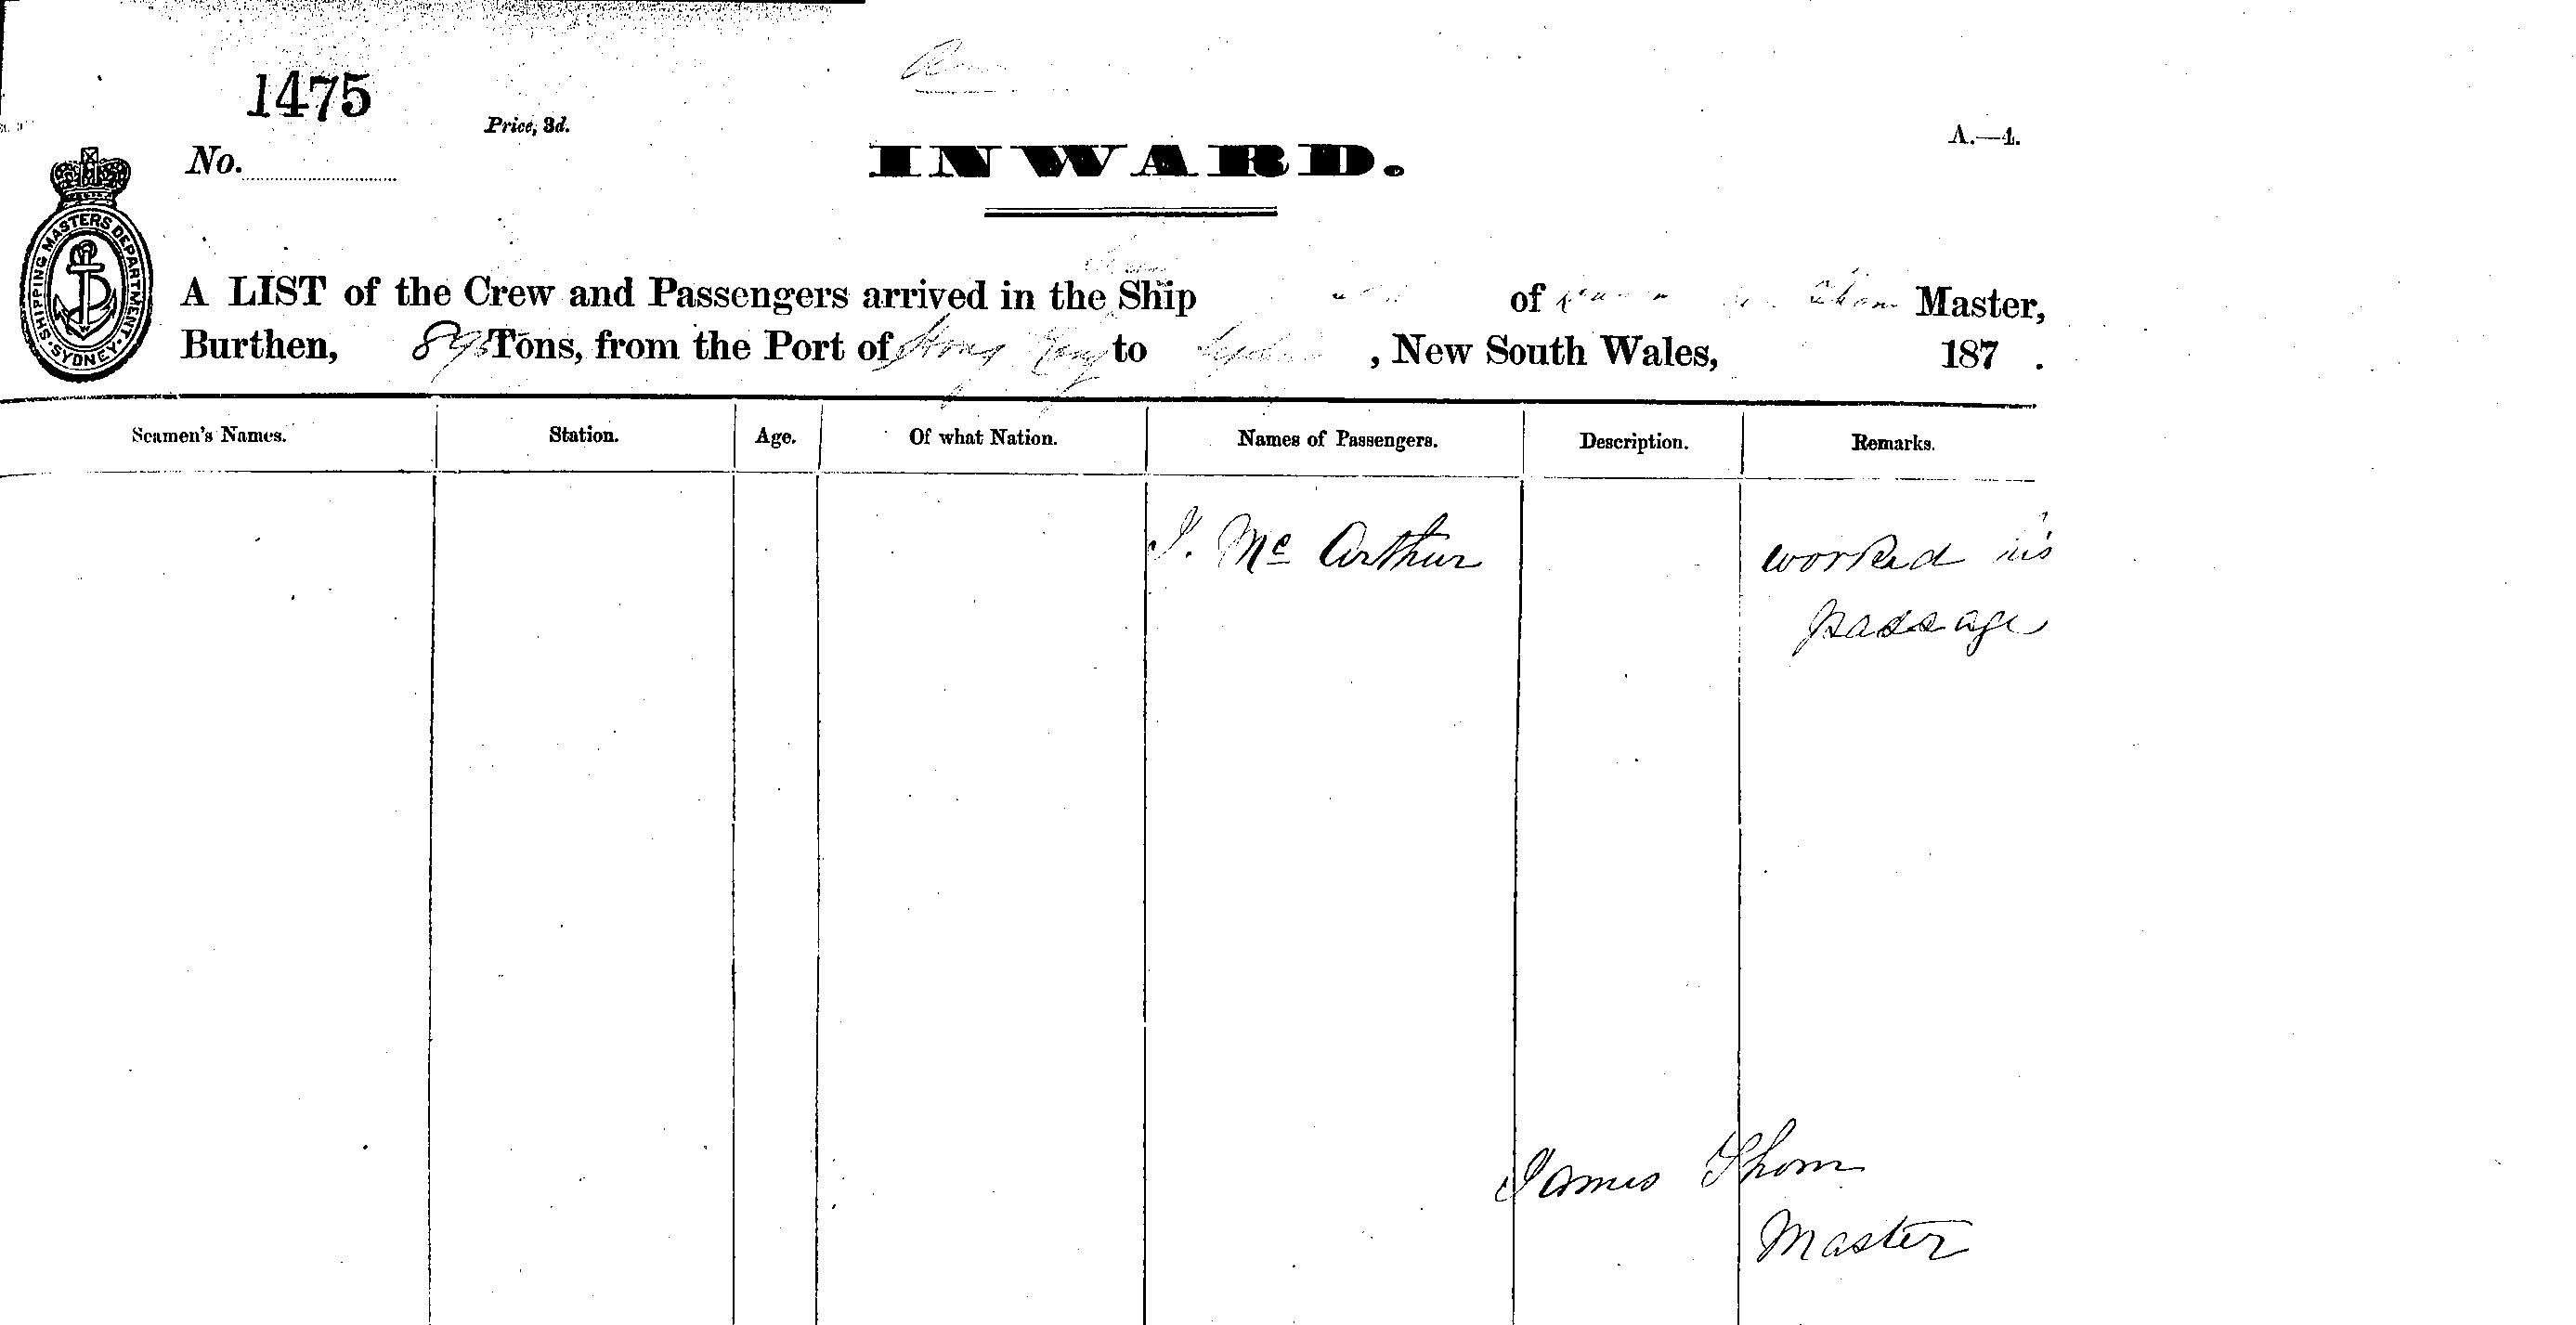 1475
Price, 3d.
A.—4.
No.
INWARD.
SHIPPING MASTERS DEPARTMENT · SYDNEY ·
A LIST of the Crew and Passengers arrived in the Ship of Thom Master,
Burthen, Tons, from the Port of Hong Kong to Sydney, New South Wales, 187 .
Seamen's Names. Station. Age. Of what Nation. Names of Passengers. Description. Remarks.
J. Mc Arthur worked his
passage
James Thom
Master